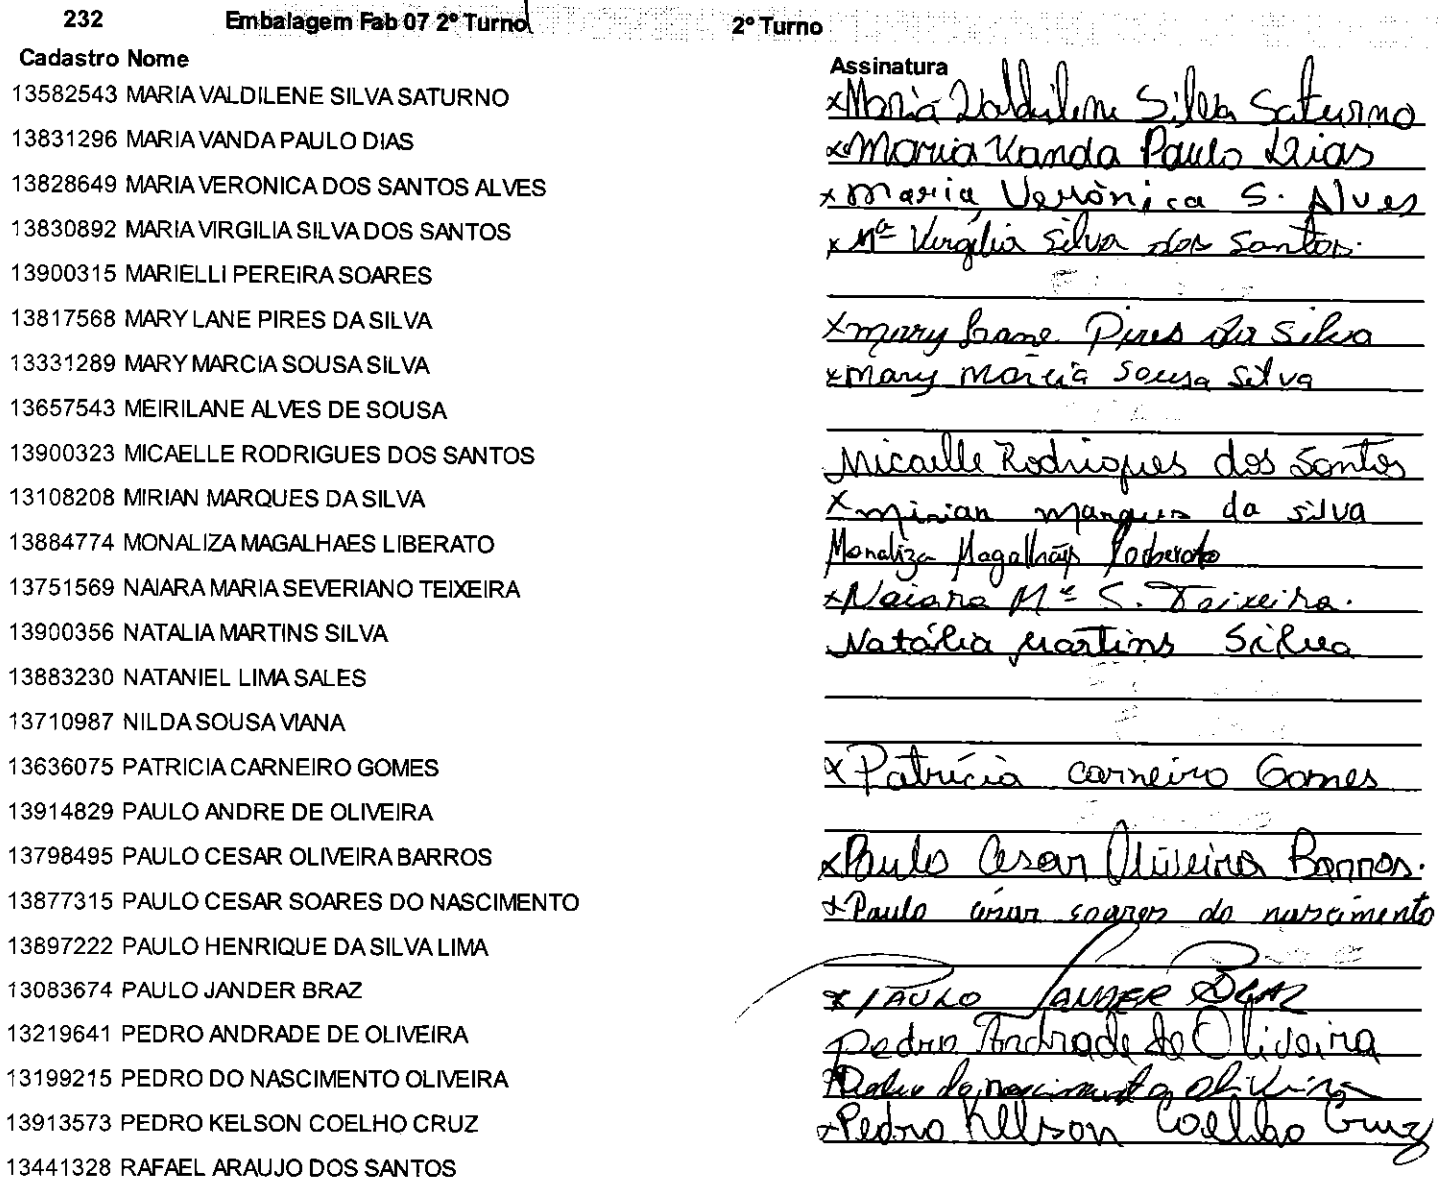 232 Embalagem Fab 07 2º Turno 2º Turno
Cadastro Nome Assinatura
13582543 MARIA VALDILENE SILVA SATURNO xMaria Valdilene Silva Saturno
13831296 MARIA VANDA PAULO DIAS xMaria Vanda Paulo Dias
13828649 MARIA VERONICA DOS SANTOS ALVES xMaria Verônica S. Alves
13830892 MARIA VIRGILIA SILVA DOS SANTOS x Mª Virgília Silva dos Santos.
13900315 MARIELLI PEREIRA SOARES
13817568 MARY LANE PIRES DA SILVA xmary Lane Pires da Silva
13331289 MARY MARCIA SOUSA SILVA xMary Márcia Sousa Silva
13657543 MEIRILANE ALVES DE SOUSA
13900323 MICAELLE RODRIGUES DOS SANTOS Micaelle Rodrigues dos Santos
13108208 MIRIAN MARQUES DA SILVA xmirian marques da silva
13884774 MONALIZA MAGALHAES LIBERATO Monaliza Magalhães
13751569 NAIARA MARIA SEVERIANO TEIXEIRA xNaiara Mª S. Teixeira.
13900356 NATALIA MARTINS SILVA Natália Martins Silva
13883230 NATANIEL LIMA SALES
13710987 NILDA SOUSA VIANA
13636075 PATRICIA CARNEIRO GOMES xPatrícia carneiro Gomes
13914829 PAULO ANDRE DE OLIVEIRA
13798495 PAULO CESAR OLIVEIRA BARROS xPaulo Cesar Oliveira Barros.
13877315 PAULO CESAR SOARES DO NASCIMENTO xPaulo cesar soares do nascimento
13897222 PAULO HENRIQUE DA SILVA LIMA
13083674 PAULO JANDER BRAZ xPAULO JANDER BRAZ
13219641 PEDRO ANDRADE DE OLIVEIRA Pedro Andrade de Oliveira
13199215 PEDRO DO NASCIMENTO OLIVEIRA xPedro do nascimento oliveira
13913573 PEDRO KELSON COELHO CRUZ xPedro Kelson Coelho Cruz
13441328 RAFAEL ARAUJO DOS SANTOS